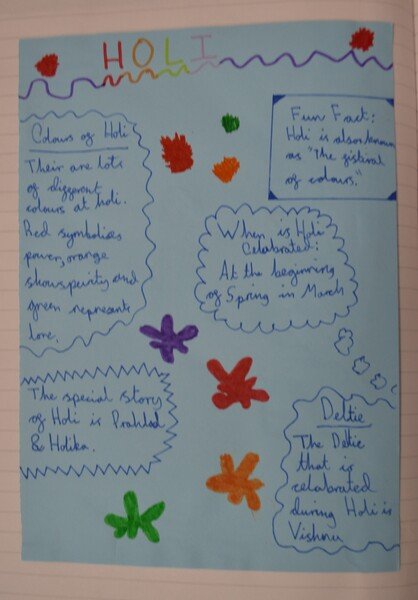 HOLI
Colours of Holi
Their are lots
of different
colours at holi.
Red symbolises
power, orange
shows purity and
green represents
love.
Fun Fact:
Holi is also known
as "The fistival
of colours."
When is Holi
Celabrated:
At the beginning
of Spring in March
The special story
of Holi is Prahlad
& Holika.
Deltie
The Deltie
that is
celabrated
during Holi is
Vishnu